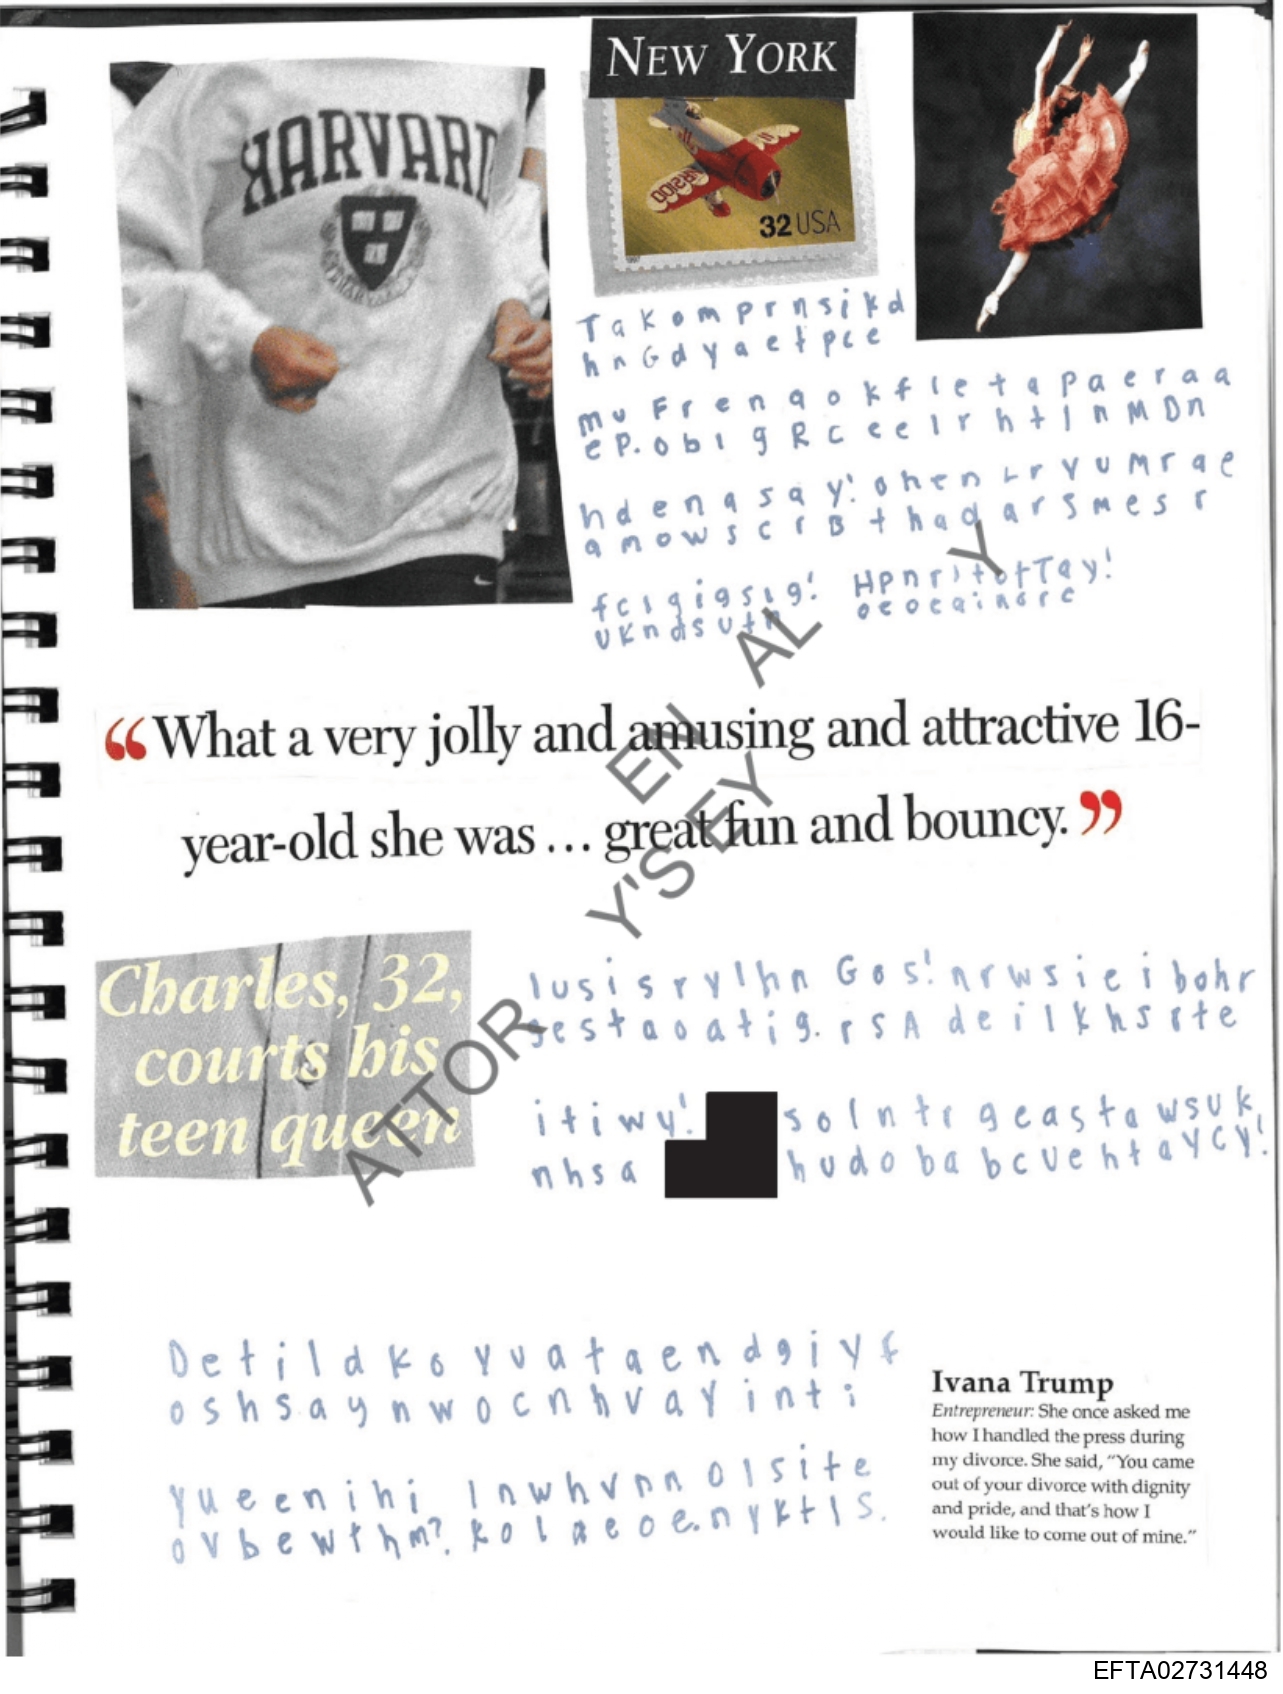 HARVARD
NEW YORK
32 USA
T a k o m p r n s i k d
h n G d y a e t p c e
m u F r e n a o k f l e t a p a e r a a
e P. o b i g R c e e l r h t I n M D n
h d e n a s a y! o h e n L r y u M r a e
a m o w s c r B t h a d a r S m e s r
f c i g i g s i g! H p n r i t o t T a y!
u k n d s u t h o e o e a i n d r c
“What a very jolly and amusing and attractive 16-
year-old she was ... great fun and bouncy.”
Charles, 32,
courts his
teen queen
l u s i s r y l h n G o s! n r w s i e i b o h r
g e s t a o a t i g. r S A d e i l k h s r t e
i t i w y! s o l n t r g e a s t a w s u k,
n h s a h u d o b a b c u e h t a y c y!
D e t i l d k o y u a t a e n d g i y f
o s h s a y n w o c n h v a y i n t i
y u e e n i h i I n w h v n n o l s i t e
o v b e w t h m? k o l a e o e. n y k t l s.
Ivana Trump
Entrepreneur: She once asked me
how I handled the press during
my divorce. She said, “You came
out of your divorce with dignity
and pride, and that’s how I
would like to come out of mine.”
ATTOR Y'S EY
EN AL Y
EFTA02731448